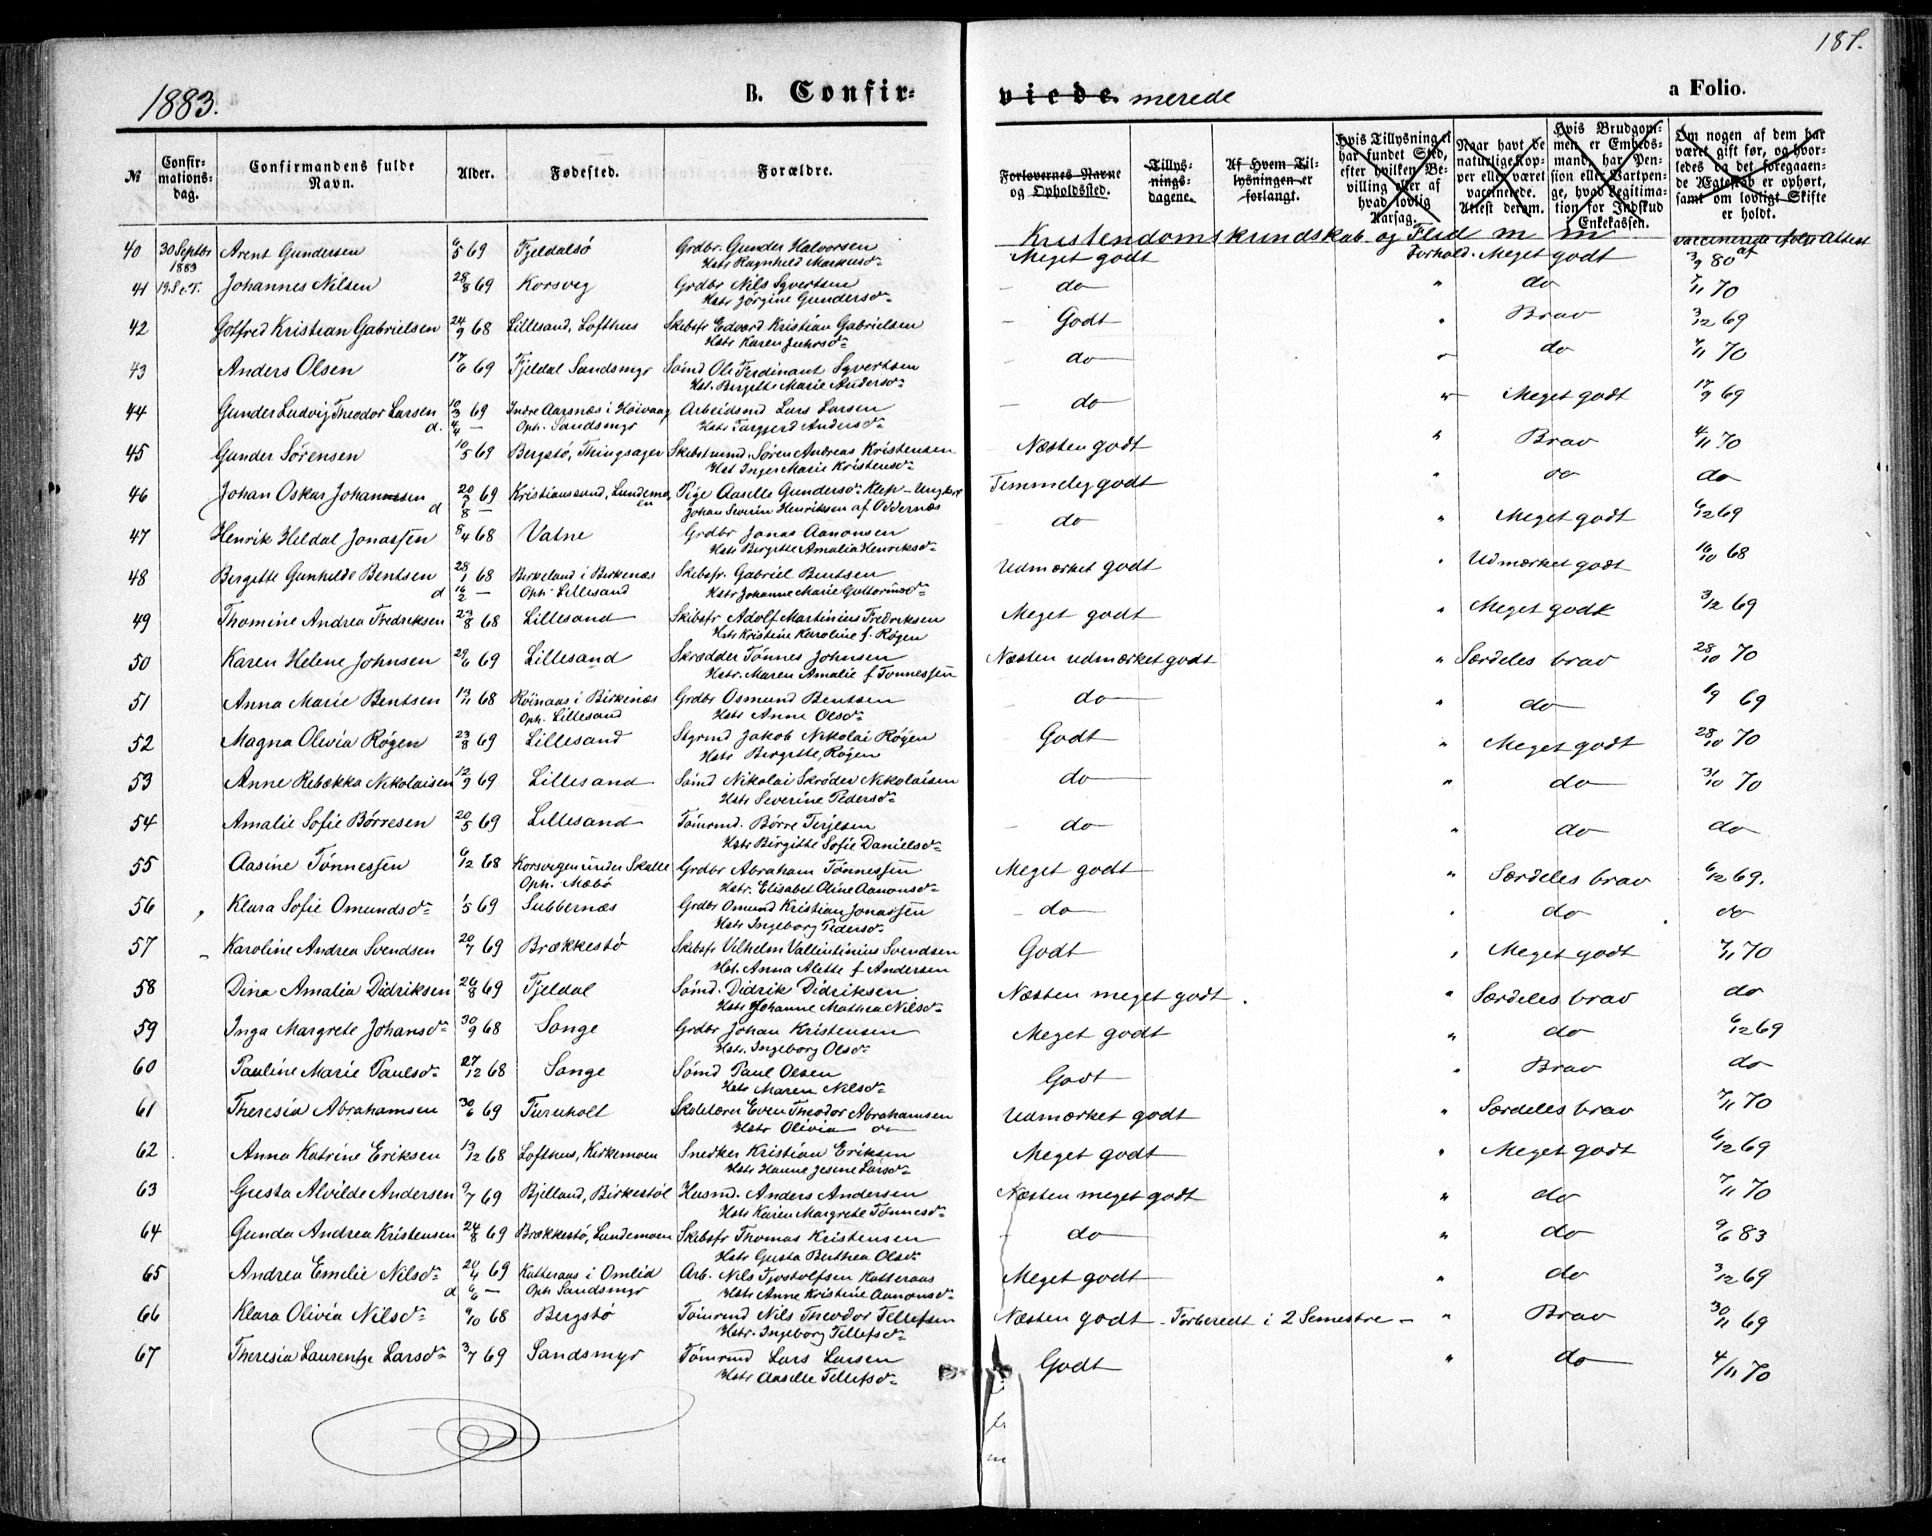 181.
1883.
B. Confir-
viede. merede
a Folio.
№
Confir-
mations-
dag.
Confirmandens fulde
Navn.
Alder.
Fødested.
Forældre.
Forlovernes Navne
og Opholdssted.
Tillys-
nings-
dagene.
Af Hvem Til-
lysningen er
forlangt.
Hvis Tillysning ei
har fundet Sted,
efter hvilken Be-
villing eller af
hvad lovlig
Aarsag.
Naar havt de
naturlige Kop-
per eller været
vaccinerede.
Attest derom.
Hvis Brudgom-
men er Embeds-
mand, har Pen-
sion eller Vartpen-
ge, hvad Legitima-
tion for Indskud
i Enkekassen.
Om nogen af dem har
været gift før, og hvor-
ledes og det foregaaen-
de Ægteskab er ophørt,
samt om lovligt Skifte
er holdt.
Kristendomskundskab og Flid m m
vaccinerede ifølge Attest af
40 30 Septbr 1883 Arent Gundersen 6/5 69 Fjeldalsö Grdbr. Gunder Halvorsen Meget godt Forhold. Meget godt 3/9 80
Hstr Ragnhild Markusdr
41 19. S.e.T. Johannes Nilsen 28/8 69 Korsvig Grdbr Nils Syvertsen - do " do 7/11 70
Hstr Jörgine Gundersdr
42 Gotfred Kristian Gabrielsen 24/9 68 Lillesand, Lofthus Skibsfr Edvard Kristian Gabrielsen - Godt " Brav 3/12 69
Hstr Karen
43 Anders Olsen 17/6 69 Fjeldal Sandsmyr Sömd Ole Ferdinant Syvertsen - do " do 7/11 70
Hst. Bergitte Marie Andersdr
44 Gunder Ludvig Theodor Larsen 10/3 69 Indre Aarsnæs i Höivaag Arbeidsmd Lars Larsen - do " Meget godt 17/9 69
d. 4/4 — Oph. Sandsmyr Hstr Targjerd Andersdr
45 Gunder Sörensen 10/5 69 Bergstö, Thingsager Skibstmmd. Sören Andreas Kristensen Næsten godt " Brav 4/11 70
Hst Inger Marie Kristensdr
46 Johan Oskar Johannesen 20/7 69 Kristianssand, Lundemoen Pige Aaselle Gundersdr Klep - Ungkarl Temmelig godt " do do
d /8 — Johan Severin Henriksen af Oddernæs
47 Henrik Heldal Jonassen 8/4 68 Vatne Grdbr Jonas Aanonsen do " Meget godt 6/12 69
Hstr Birgitte Amalia Henriksdr
48 Bergitte Gunhilde Bentsen 28/1 68 Birkeland i Birkenæs Skibsfr. Gabriel Bentsen Udmærket godt " Udmærket godt 16/10 68
d 16/2 — Oph. Lillesand Hstr Johanne Marie Guttormsdr
49 Thomine Andrea Fredriksen 23/8 68 Lillesand Skibsfr Adolf Martinius Fredriksen Meget godt " Meget godt 3/12 69
Hstr Kristine Karoline f. Röyen
50 Karen Helene Johnsen 29/6 69 Lillesand Skrædder Tönnes Johnsen Næsten udmærket godt " Særdeles brav 28/10 70
Hstr. Maren Amalie f Tönnessen
51 Anna Marie Bentsen 13/11 68 Röinaas i Birkenæs Grdbr Osmund Bentsen do " do 1/9 69
Oph. Lillesand Hstr Anne Olsdr
52 Magna Olivia Röyen 23/8 69 Lillesand Stgrmd Jakob Nikolai Röyen Godt " Meget godt 28/10 70
Hstr Bergitte Röyen
53 Anne Rebækka Nikolaisen 12/9 69 Lillesand Sömd Nikolai Skröder Nikolaisen do " do 31/10 70
Hstr Severine Pedersdr
54 Amalie Sofie Börresen 20/5 69 Lillesand Tömrmd. Börre Terjesen - do " do do
Hstr Birgitte Sofie Danielsdr
55 Aasine Tönnessen 6/12 68 Korsvigen under Skalle Grdbr Abraham Tönnessen Meget godt " Særdeles brav 6/12 69.
Oph. Mæbö Hstr. Elisabet Oline Aanonsdr
56 Klara Sofie Omundsdr 1/5 69 Subbernæs Grdbr Omund Kristian Jonassen - do " do do
Hstr Ingeborg Pedersdr
57 Karoline Andrea Svendsen 20/7 69 Brækkestö Skibsfr Vilhelm Vallintinius Svendsen Godt " Meget godt 7/11 70
Hst. Anna Alette f Andersen
58 Dina Amalia Didriksen 26/8 69 Fjeldal Sömd. Didrik Didriksen Næsten meget godt. " Særdeles brav do
Hstr Johanne Mathea Nilsdr
59 Inga Margrete Johansdr 30/9 68 Songe Grdbr Johan Kristensen Meget godt " do 6/12 69
Hstr. Ingeborg Olsdr
60 Pauline Marie Paulsdr 27/12 68 Songe Sömd Paul Olsen Godt " Brav do
Hstr Maren Nilsdr
61 Theresia Abrahamsen 30/6 69 Furuholt Skolelærer Even Theodor Abrahamsen Udmærket godt " Særdeles brav 7/11 70
Hstr Olivia
62 Anna Katrine Eriksen 13/12 68 Lofthus, Kirkemoen Snedker Kristian Eriksen Meget godt " Meget godt 6/12 69
Hstr Hanne Jesine Larsdr
63 Gusta Alvilde Andersen 9/7 69 Bjelland, Birkestöl Husmd. Anders Andersen Næsten meget godt " do 7/11 70
Hstr Karen Margrete Tönnesdr
64 Gunda Andrea Kristensen 24/8 69 Brækkestö, Lundemoen Skibsfr Thomas Kristensen - do " do 9/6 83
Hstr Gusta Berthea Olsdr
65 Andrea Emelie Nilsdr 20/4 69 Katteraas i Omlid Arb. Nils Tjostolfsen Katteraas Meget godt " do 3/12 69
d 6/6 — Oph Sandsmyr Hstr Anne Kristine Aanonsdr
66 Klara Olivia Nilsdr 9/10 68 Bergstö Tömrmd Nils Theodor Tellefsen Næsten godt - Forberedt i 2 Semestre - " Brav 30/11 69
Hstr. Ingeborg Tellefsdr
67 Theresia Laurentze Larsdr 3/7 69 Sandsmyr Tömrmd Lars Larsen Godt " do 4/11 70
Hstr Aaselle Tellefsdr